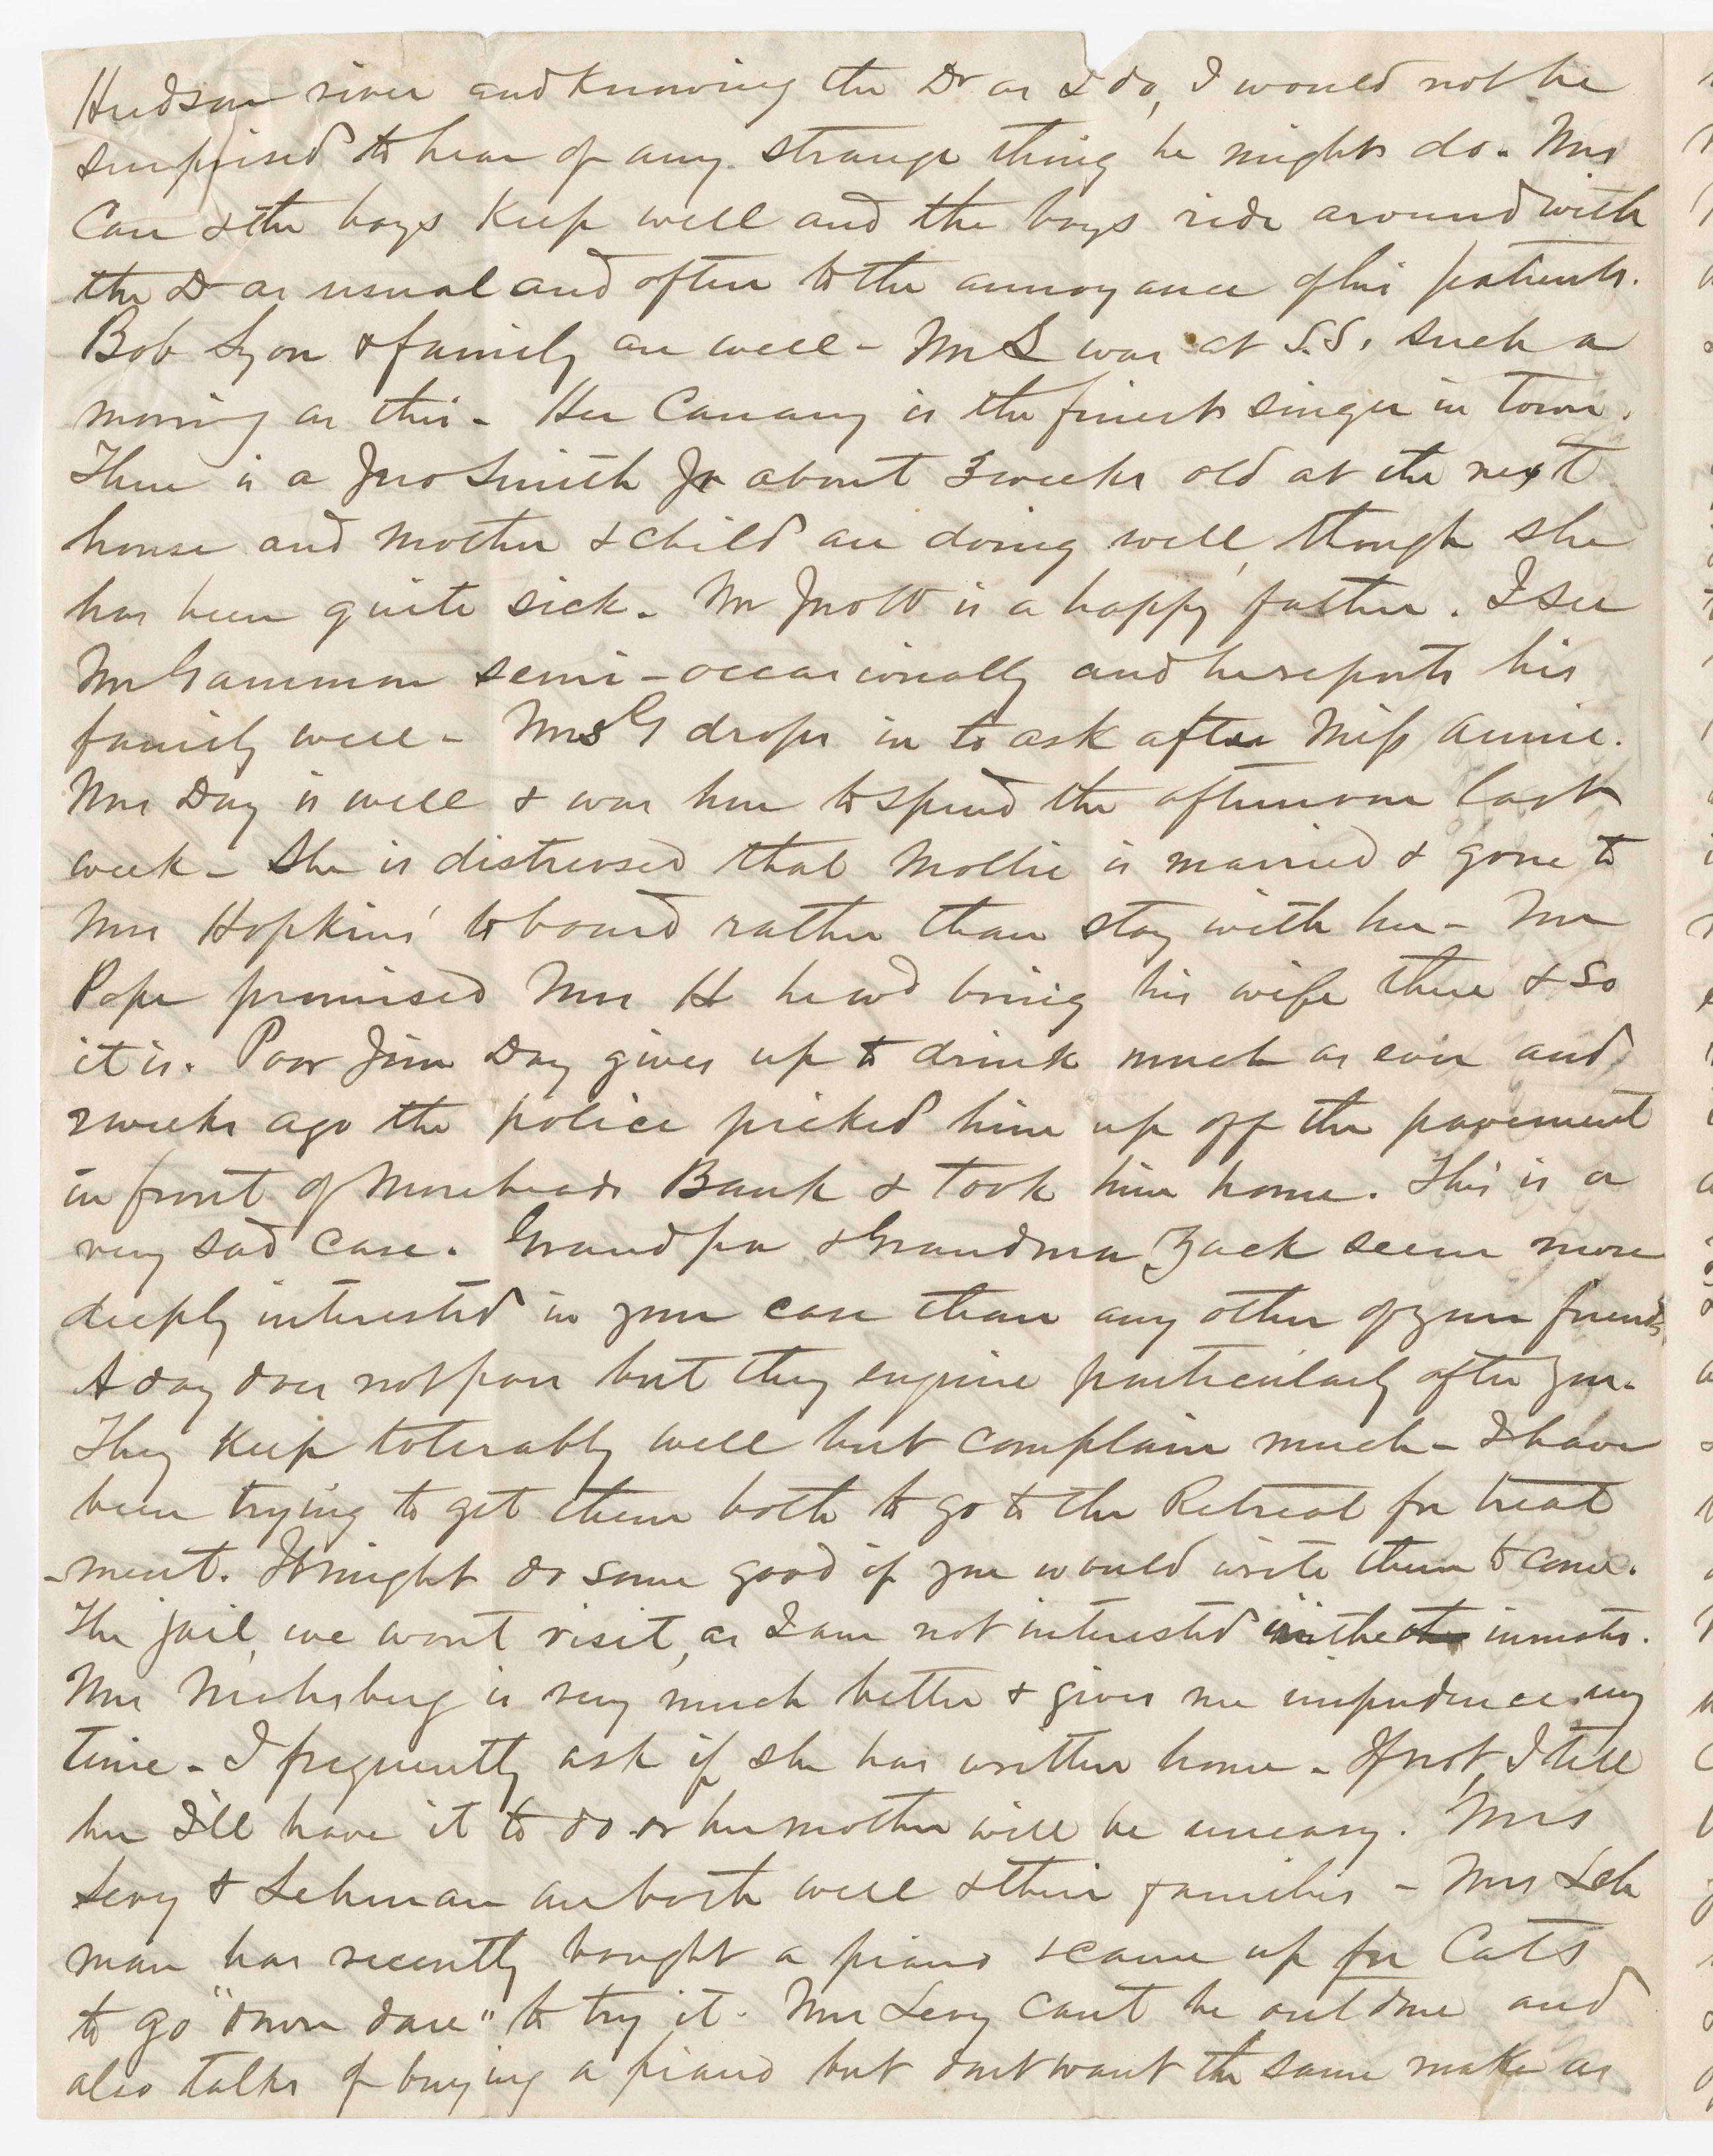 Hudson river and knowing the Dr as I do, I would not be
surprised to hear of any strange thing he might do. Mrs
Carr & the boys keep well and the boys ride around with
the Dr as usual and often to the annoyance of his patients.
Bob Lyon & family are well - Mrs L was at S.S. such a
morning as this - Her Canary is the finest singer in town.
There is a Jno Smith Jr about 3 weeks old at the next
house and mother & child are doing well, though she
has been quite sick. Mr Jno W is a happy father. I see
Mr Gammon semi-occasionally and he reports his
family well - Mrs G drops in to ask after Miss Annie.
Mrs Day is well & was here to spend the afternoon last
week - She is distressed that Mollie is married & gone to
Mrs Hopkins' to board rather than stay with her - Mr
Pope promised Mrs H he wd bring his wife there & so
it is. Poor Jim Day gives up to drink much as ever and
2 weeks ago the police picked him up off the pavement
in front of Moreheads Bank & took him home. This is a
very sad case. Grandpa & Grandma Zack seem more
deeply interested in your case than any other of your friends
A day does not pass but they enquire particularly after you.
They keep tolerably well but complain much - I have
been trying to get them both to go to the Retreat for treat
-ment. It might do some good if you would write them to come.
The jail, we wont visit, as I am not interested in the inmates.
Mrs is very much better & gives me impudence any
time - I frequently ask if she has written home - If not, I tell
her I'll have it to do or her mother will be uneasy. Mrs
Levy & Lehman are both well & their families - Mrs Leh
man has recently bought a piano & came up for Cats
to go "down dare" to try it. Mrs Levy cant be outdone and
also talks of buying a piano but dont want the same make as